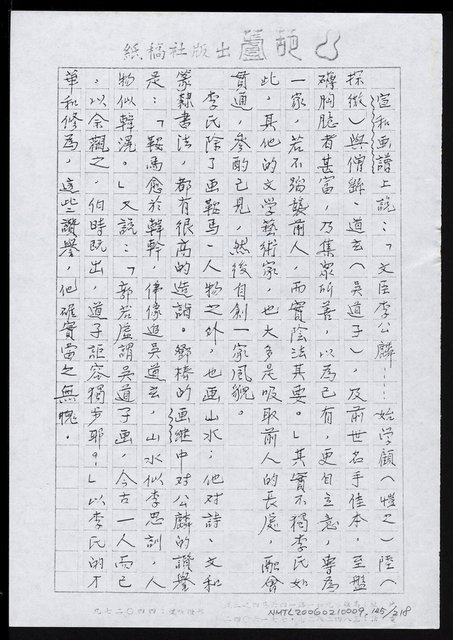 紙稿社版出蘆葩山
宣和画譜上說：「文臣李公麟……始学顧（愷之）陸（
探微）與僧繇、道玄（吳道子），及前世名手佳本，至盤
礴胸臆者甚富，乃集眾所善，以為己有，更自立意，專為
一家，若不蹈襲前人，而實陰法其要。」其實不獨李氏如
此，其他的文学藝術家，也大多是吸取前人的長處，融會
貫通，參酌己見，然後自創一家風貌。
李氏除了画鞍馬、人物之外，也画山水；他对詩、文和
篆隸書法，都有很高的造詣。鄧椿的画継中对公麟的讚譽
是：「鞍馬愈於韓幹，佛像追吳道玄，山水似李思訓，人
物似韓滉。」又說：「郭若虛謂吳道子画，今古一人而已
，以余觀之，伯時既出，道子詎容獨步耶？」以李氏的才
華和修為，這些讚譽，他確實當之無愧。
NMTL20060210009 145/218